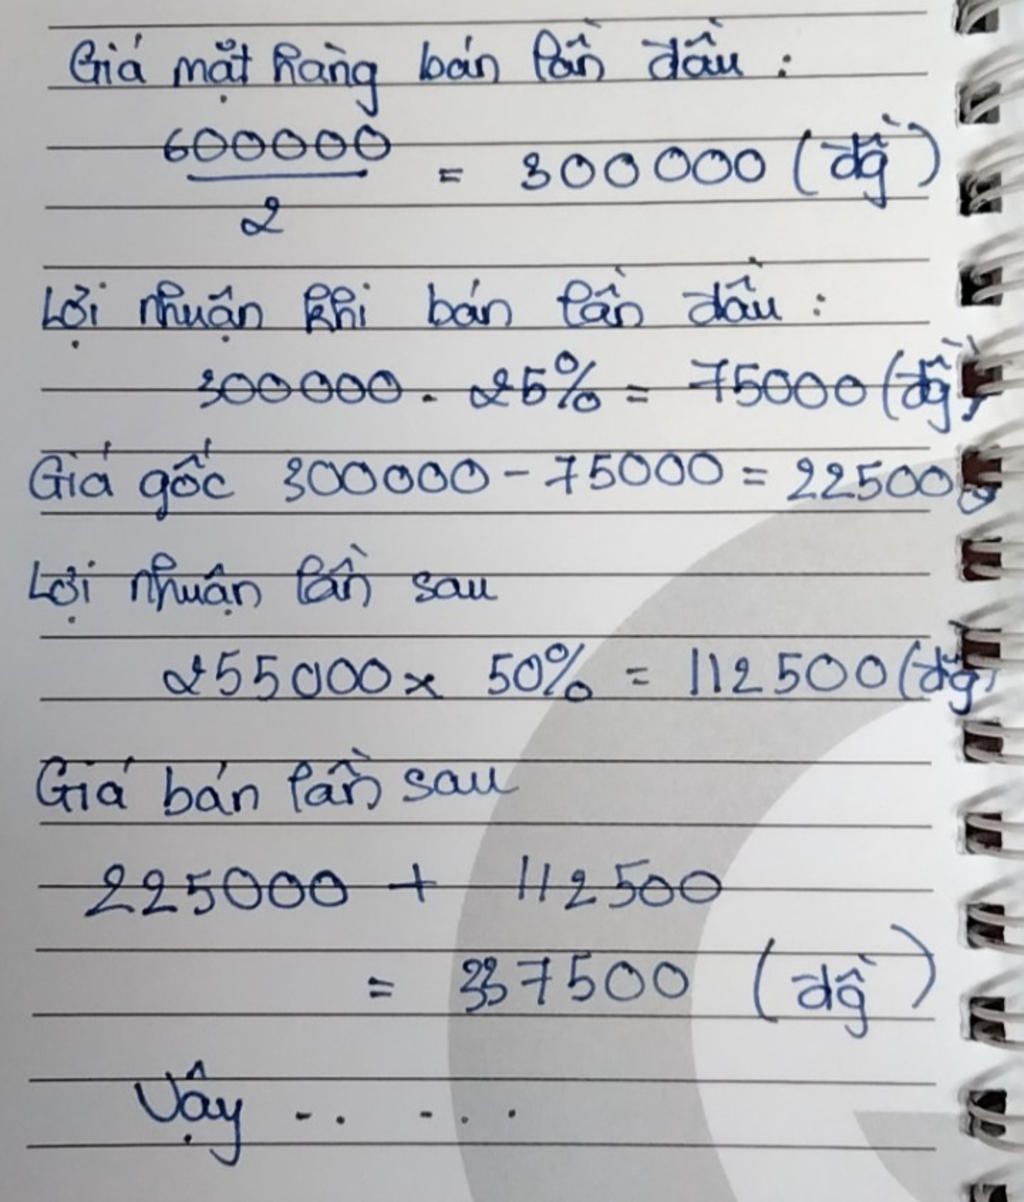 Giá mặt hàng bán lần đầu :
600000
2
= 300000 (đồg)
Lợi nhuận khi bán lần đầu :
300000 . 25% = 75000 (đồg)
Giá gốc 300000 - 75000 = 225000
Lợi nhuận lần sau
255000 x 50% = 112500 (đồg)
Giá bán lần sau
225000 + 112500
= 337500 (đồg)
Vậy .. ....